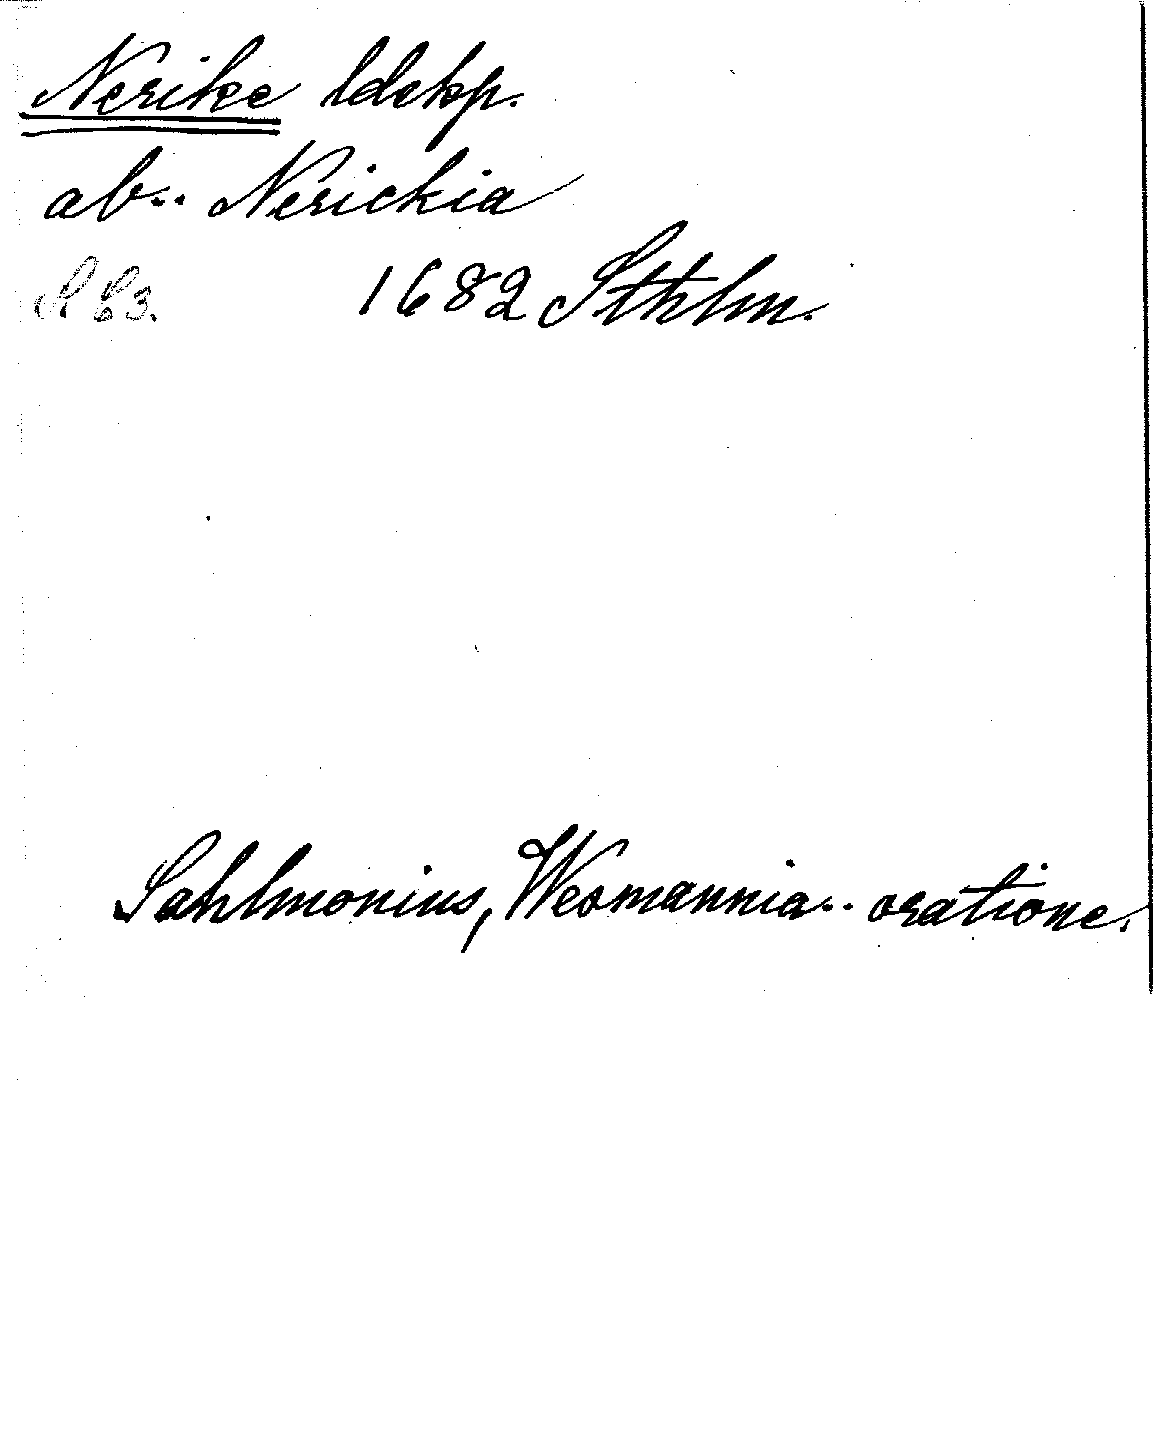 Nerike ldskp.
ab.. Nerickia
1682 Sthlm.
Sahlmonius, Wesmannia.. oratione.